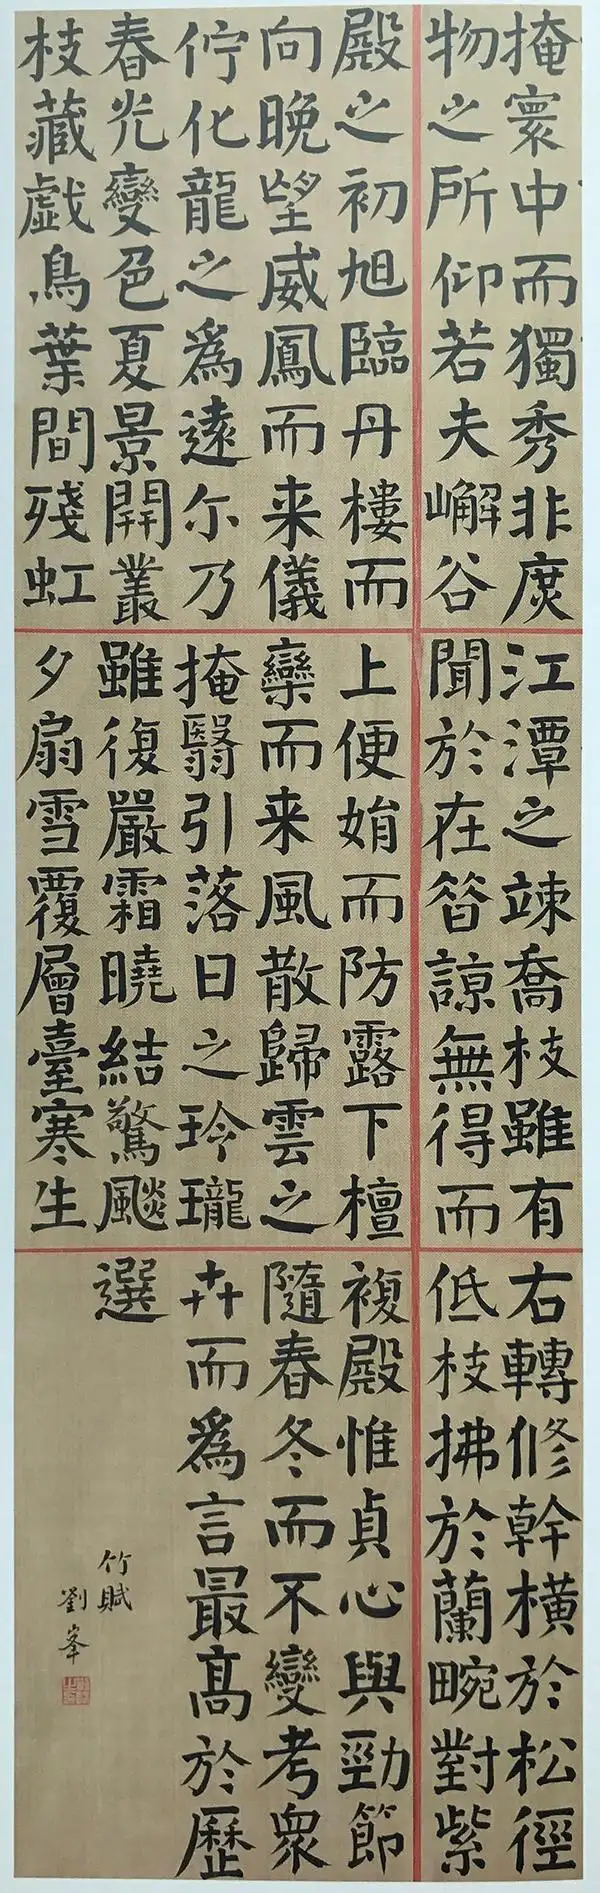 掩寰中而獨秀非庶
物之所仰若夫嶰谷
江潭之竦喬枝雖有
聞於在昝諒無得而
右轉修幹橫於松徑
低枝拂於蘭畹對紫
殿之初旭臨丹樓而
向晚望威鳳而来儀
佇化龍之為遠尔乃
春光變色夏景開叢
枝藏戲鳥葉間殘虹
上便娟而防露下檀
欒而来風散歸雲之
掩翳引落日之玲瓏
雖復嚴霜曉結驚飈
夕扇雪覆層臺寒生
複殿惟貞心與勁節
隨春冬而不變考眾
卉而為言最高於歷
選
竹賦
劉峯